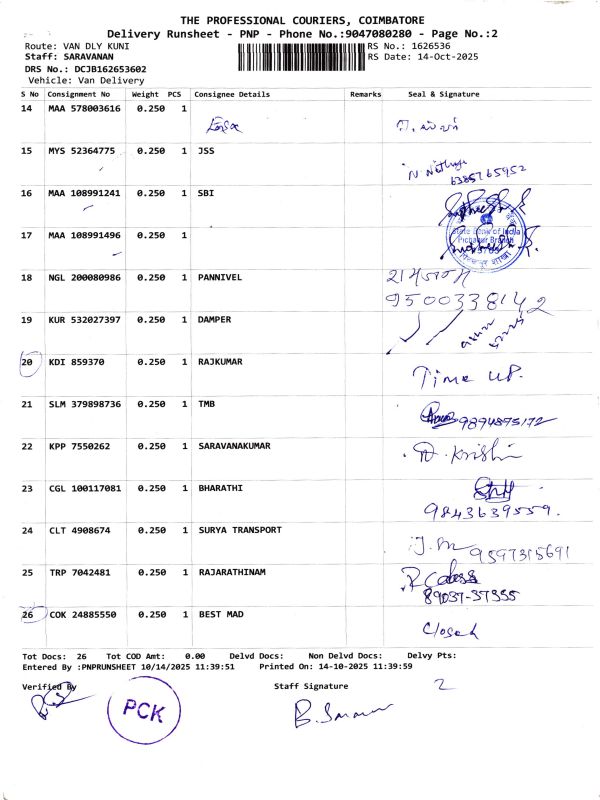 THE PROFESSIONAL COURIERS, COIMBATORE
Delivery Runsheet - PNP - Phone No.:9047080280 - Page No.:2
Route: VAN DLY KUNI
RS No.: 1626536
Staff: SARAVANAN
RS Date: 14-Oct-2025
DRS No.: DCJB162653602
Vehicle: Van Delivery
S No Consignment No Weight PCS Consignee Details Remarks Seal & Signature
14 MAA 578003616 0.250 1
15 MYS 52364775 0.250 1 JSS
6385765952
16 MAA 108991241 0.250 1 SBI
State Bank of India
17 MAA 108991496 0.250 1
18 NGL 200080986 0.250 1 PANNIVEL
9500338142
19 KUR 532027397 0.250 1 DAMPER
20 KDI 859370 0.250 1 RAJKUMAR Time UP.
21 SLM 379898736 0.250 1 TMB
22 KPP 7550262 0.250 1 SARAVANAKUMAR
23 CGL 100117081 0.250 1 BHARATHI
9843639559.
24 CLT 4908674 0.250 1 SURYA TRANSPORT
9597315691
25 TRP 7042481 0.250 1 RAJARATHINAM
89037-37355
26 COK 24885550 0.250 1 BEST MAD
Closed
Tot Docs: 26 Tot COD Amt: 0.00 Delvd Docs: Non Delvd Docs: Delvy Pts:
Entered By :PNPRUNSHEET 10/14/2025 11:39:51 Printed On: 14-10-2025 11:39:59
Verified By Staff Signature 2
PCK